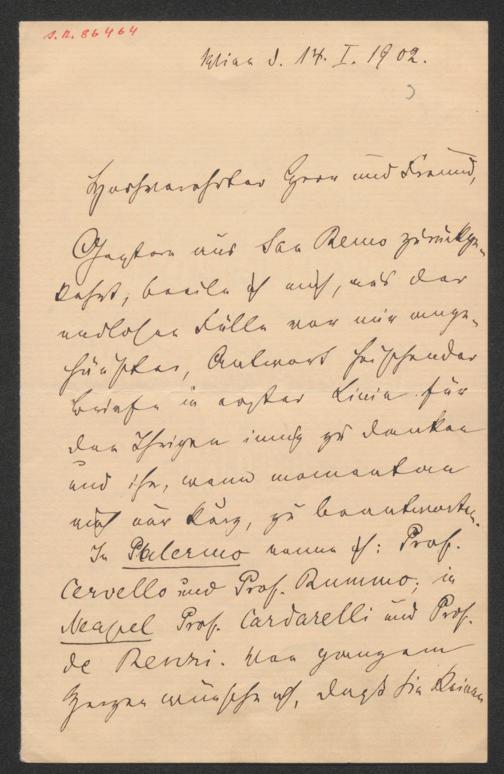 J.N. 86464
Wien d. 14. I. 1902.
Hochverehrter Herr und Freund,
Gestern aus San Remo zurückge-
kehrt, beeile ich mich, aus der
endlosen Fülle vor mir ange-
häufter, Antwort heischender
Briefe in erster Linie für
den Ihrigen innig zu danken
und ihn, wenn momentan
auch nur kurz, zu beantworten.
In Palermo nenne ich: Prof.
Cervello und Prof. Rummo; in
Neapel Prof. Cardarelli und Prof.
de Renzi. Von ganzem
Herzen wünsche ich, dass Sie keinen